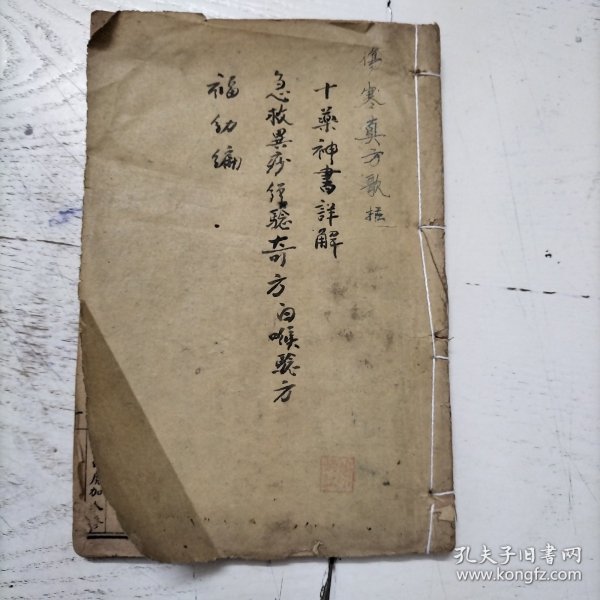 傷寒真方歌括
十藥神書詳解
急救異痧經驗奇方白喉驗方
福幼編
加人
孔夫子旧书网
www.kongfz.com